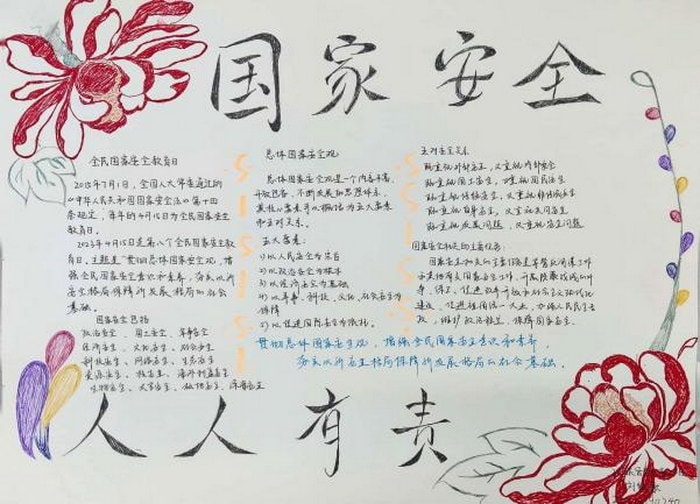 国家安全
全民国家安全教育日
2015年7月1日,全国人大常委通过的
《中华人民共和国国家安全法》第十四
条规定,每年的4月15日为全民国家安全
教育日。
2023年4月15日是第八个全民国家安全教
育日。主题是"贯彻总体国家安全观,增
强全民国家安全意识和素养,夯实以新
安全格局保障新发展格局的社会
基础。
国家安全包括
政治安全、国土安全、军事安全
经济安全、文化安全、社会安全
科技安全、网络安全、生态安全
资源安全、核安全、海外利益安全
生物安全、太空安全、极地安全、深海安全
总体国家安全观
总体国家安全观是一个内容丰富、
开放包容、不断发展的思想体系,
其核心要素可以概括为五大要素
和五对关系。
五大要素:
1)以人民安全为宗旨
2)以政治安全为根本
3)以经济安全为基础
4)以军事、科技、文化、社会安全为
保障
5)以促进国际安全为依托
五对安全关系
既重视外部安全,又重视内部安全
既重视国土安全,又重视国民安全
既重视传统安全,又重视非传统安全
既重视自身安全,又重视共同安全
既重视发展问题,又重视安全问题
国家安全机关的主要任务:
贯彻总体国家安全观,增强全民国家安全意识和素养,
夯实以新安全格局保障新发展格局的社会基础。
人人有责